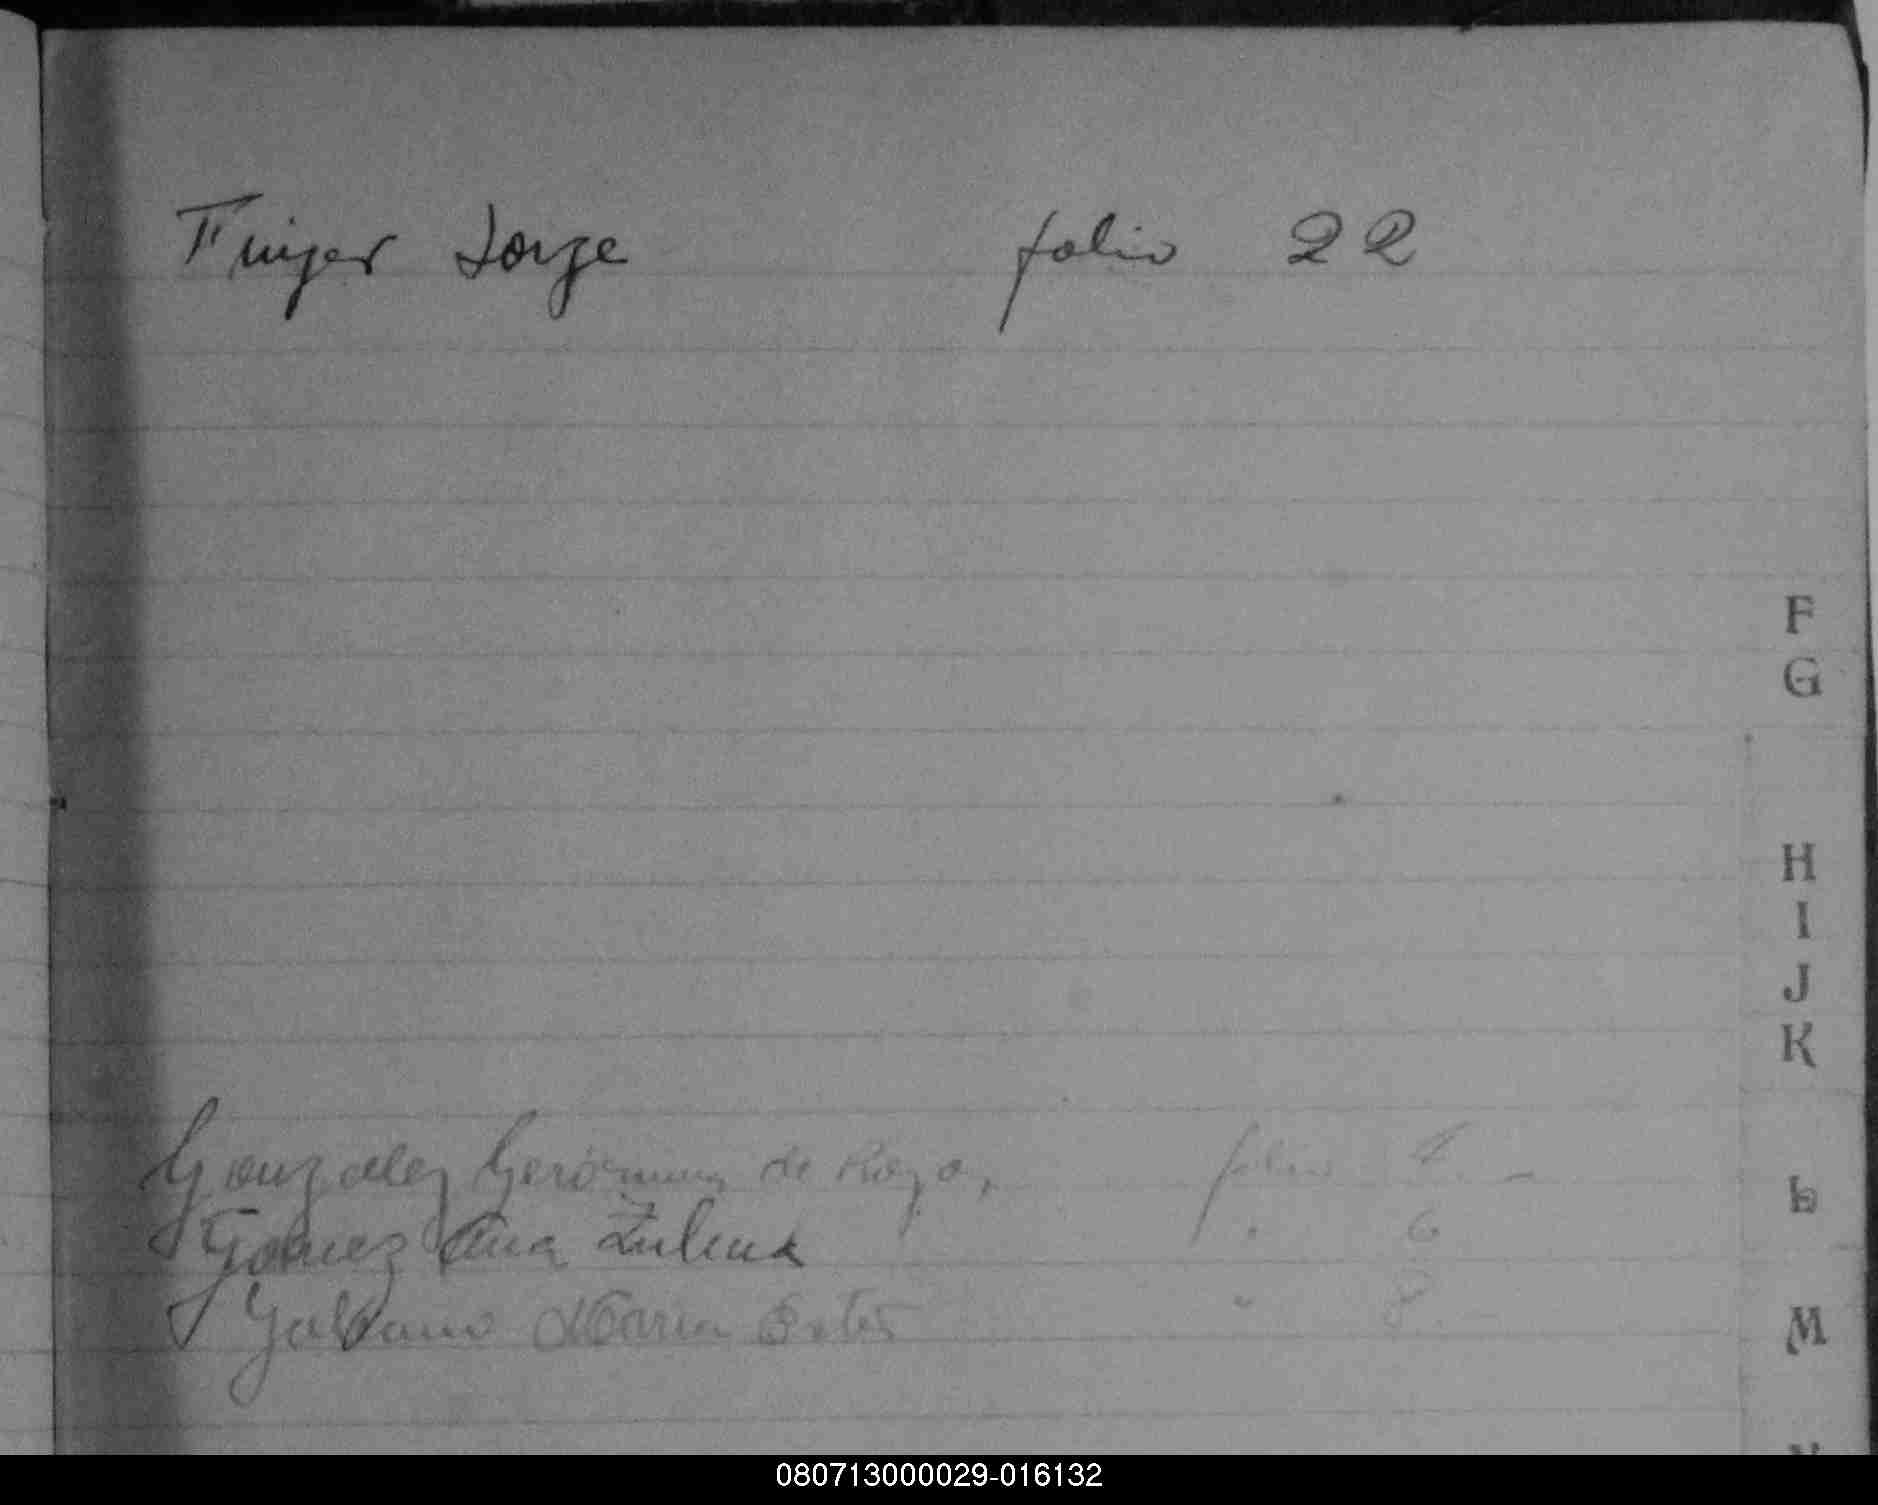 Finger Jorge folio 22
F
G
H
I
J
K
Gonzalez Gerónima de Rozo, folio
L
Gomez Ana Zulema " 6
Galvano Maria " 8
M
080713000029-016132